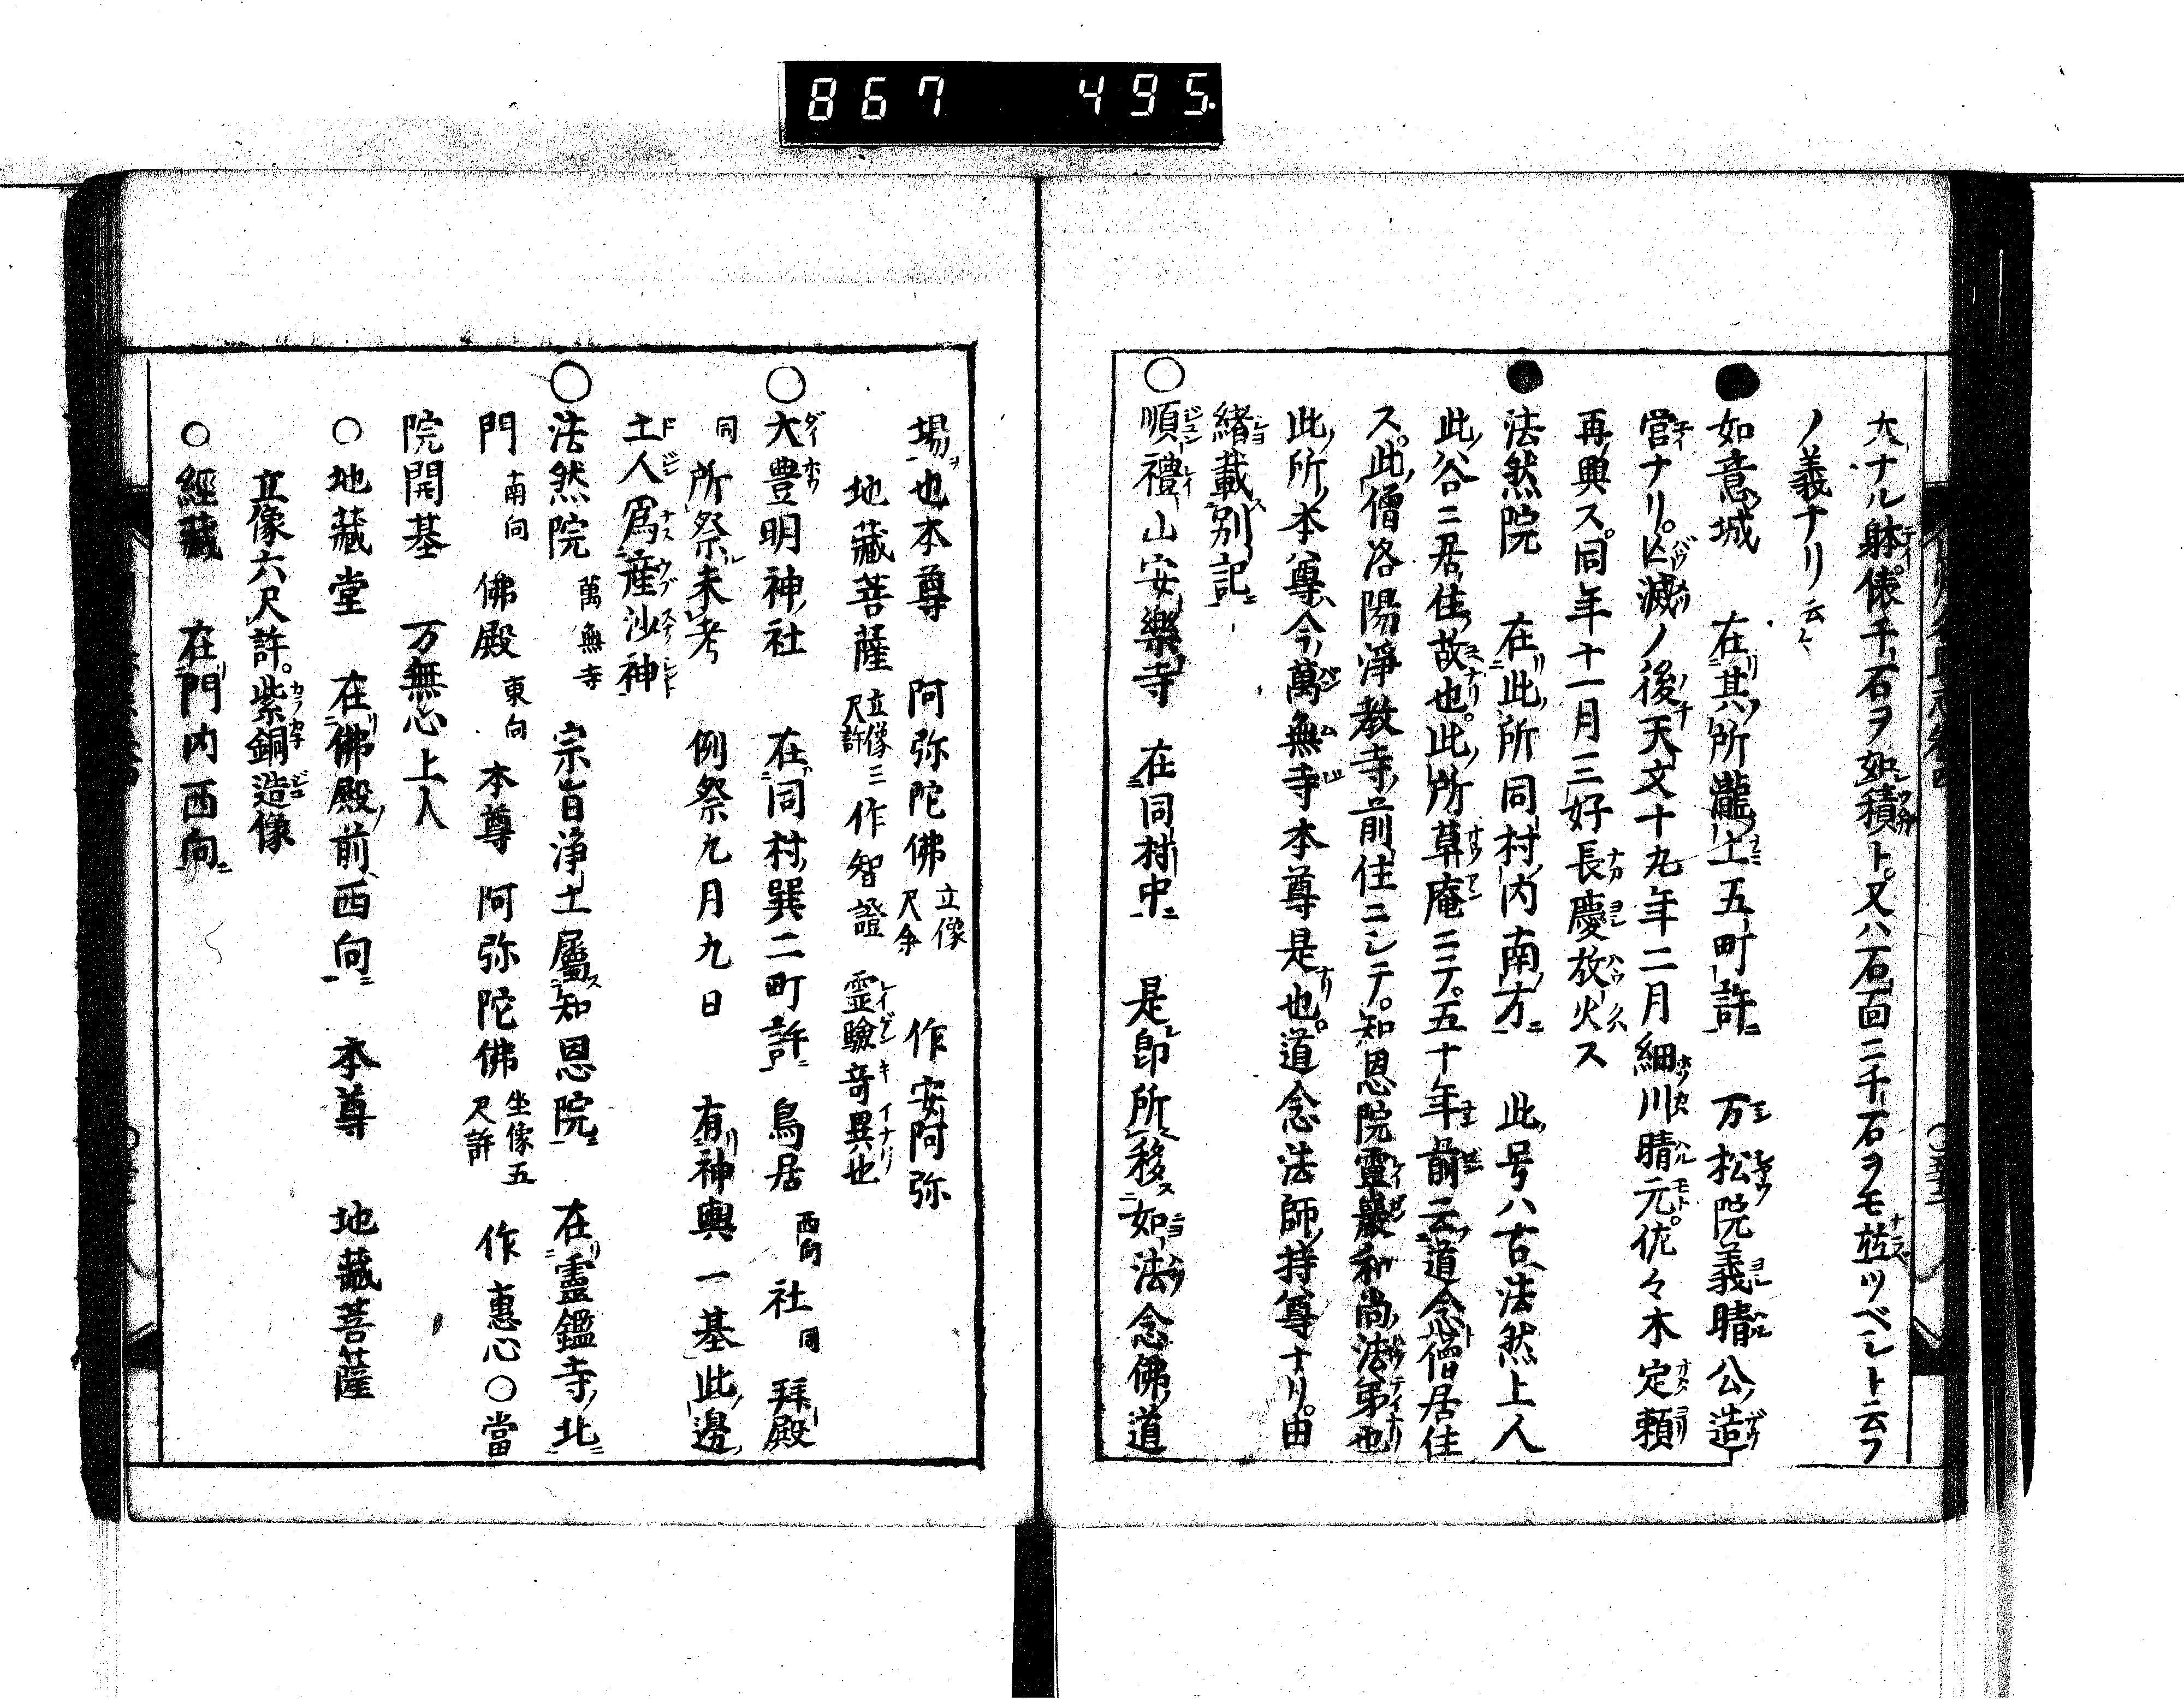 867 495
大ナル躰俵千石ヲ如積ト又ハ石面ニ千石ヲモ莚ツベシト云フ
ノ義ナリ云々
●如意城 在其所瀧上五町許 万松院義晴公造
営ナリ。亡滅ノ後天文十九年二月細川晴元佐々木定頼
再興ス。同年十一月三好長慶放火ス
●法然院 在此所同村内南方 此号ハ古法然上人
此谷ニ居住故也。此所草庵ニテ。五十年前云道念僧居住
ス。此僧洛陽淨教寺前住ニシテ。知恩院靈巖和尚法弟也
此所本尊今萬無寺本尊是也。道念法師持尊ナリ。由
緒載別記
○順禮山安樂寺 在同村中 是即所移如法念佛道
場也本尊 阿弥陀佛 立像尺余 作安阿弥
地藏菩薩 立像三尺許 作智證 靈驗奇異也
○大豊明神社 在同村巽二町許 鳥居 西向 社 同 拜殿
同 所祭未考 例祭九月九日 有神輿一基此邊
土人爲産沙神
○法然院 萬無寺 宗旨浄土屬知恩院 在靈鑑寺北
門 南向 佛殿 東向 本尊 阿弥陀佛 坐像五尺許 作惠心○當
院開基 万無心上人
○地藏堂 在佛殿前西向 本尊 地藏菩薩
立像六尺許。紫銅造像
○經藏 在門内西向